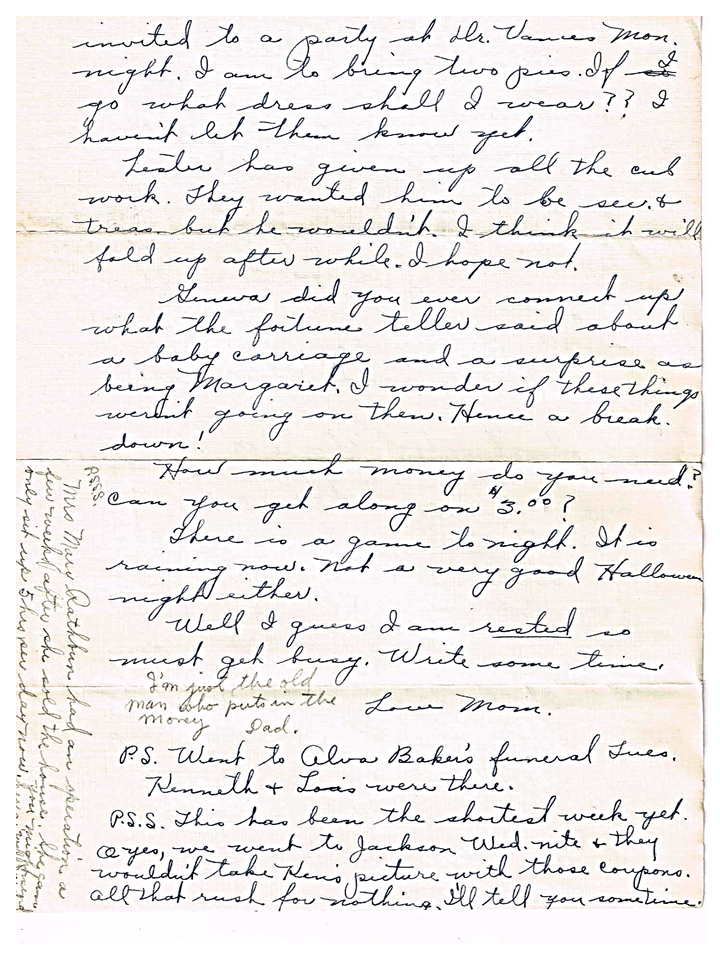 invited to a party at Dr. Vances Mon.
night. I am to bring two pies. If I
go what dress shall I wear?? I
haven't let them know yet.
Lester has given up all the cub
work. They wanted him to be sec. &
treas. but he wouldn't. I think it will
fold up after while. I hope not.
Geneva did you ever connect up
what the fortune teller said about
a baby carriage and a surprise as
being Margaret. I wonder if these things
weren't going on then. Hence a break.
down!
How much money do you need?
Can you get along on $3.00?
There is a game to night. It is
raining now. Not a very good Halloween
night either.
Well I guess I am rested so
must get busy. Write some time.
Love Mom.
I'm just the old
man who puts in the
money Dad.
P.S. Went to Alva Baker's funeral Tues.
Kenneth & Lois were there.
P.S.S. This has been the shortest week yet.
O yes, we went to Jackson Wed. nite & they
wouldn't take Ken's picture with those coupons.
All that rush for nothing. I'll tell you sometime.
P.S.S.
Mrs Mary Rathbun had an operation a
few weeks after she sold the house. She can
only sit up 5 hrs per day now. You might send